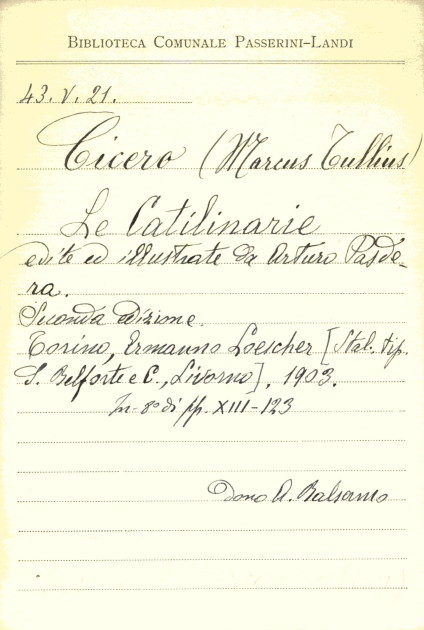 BIBLIOTECA COMUNALE PASSERINI-LANDI
43. V. 21.
Cicero (Marcus Tullius)
Le Catilinarie
edite ed illustrate da Arturo Pasde-
ra.
Seconda edizione.
Torino, Ermanno Loescher [Stab. tip.
S. Belforte e C., Livorno], 1903.
In-8° di pp. XIII-123
Dono A. Balsamo